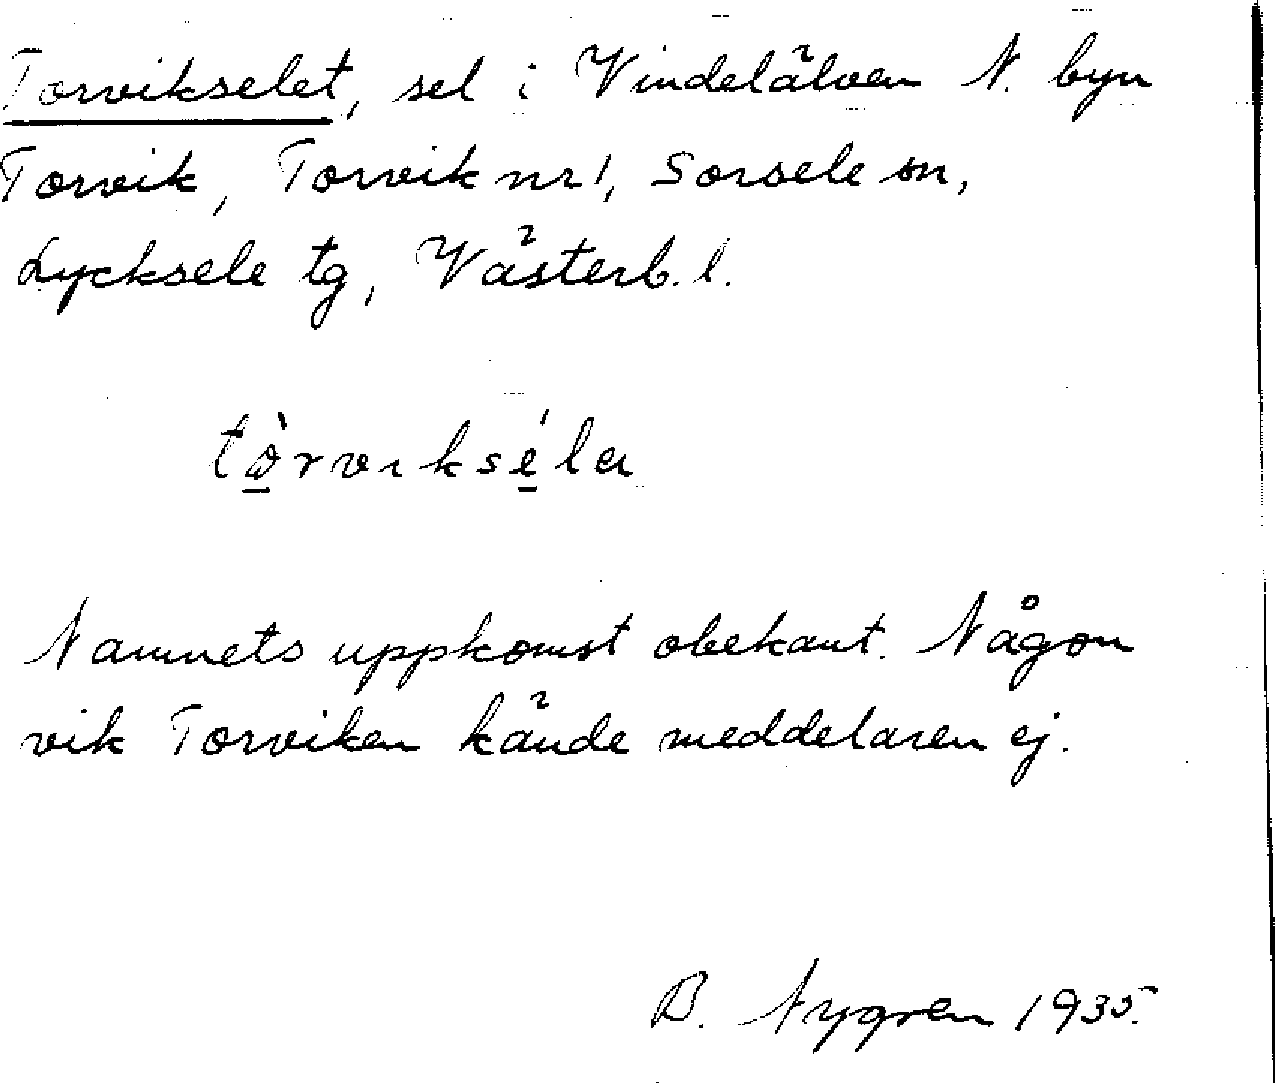 Torvikselet, sel i Vindelälven N. byn
Torvik, Torvik nr 1, Sorsele sn,
Lycksele tg, Västerb. l.
tò̱rvıksé̱la
Namnets uppkomst obekant. Någon
vik Torviken kände meddelaren ej.
B. Nygren 1935.